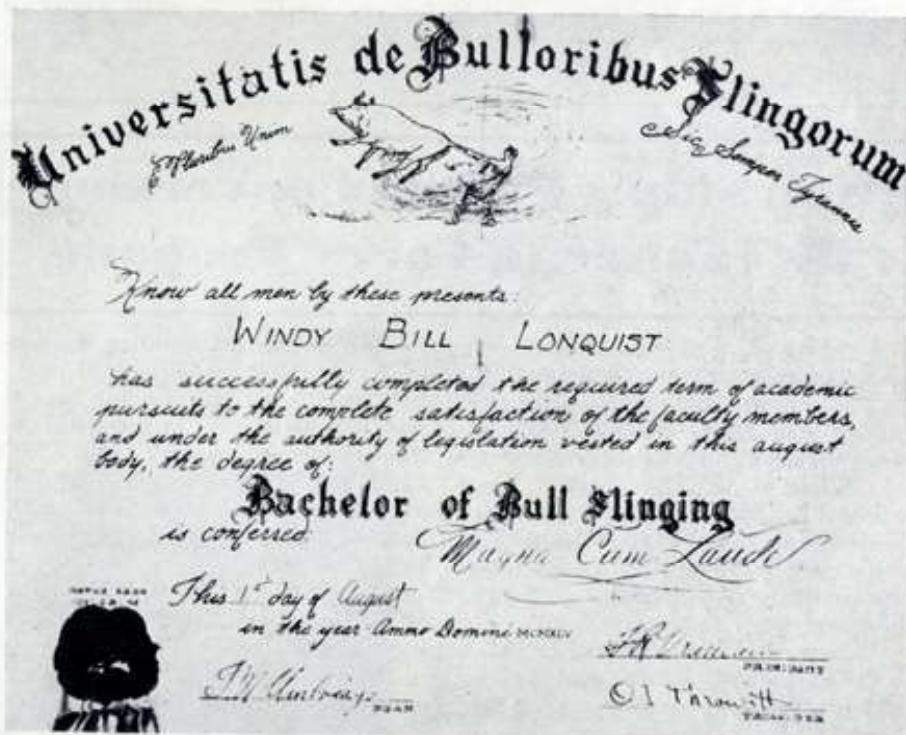 Universitatis de Bulloribus Slingorum
E Pluribus Unum
Sic Semper Tyrannis
Know all men by these presents:
WINDY BILL LONQUIST
has successfully completed the required term of academic
pursuits to the complete satisfaction of the faculty members,
and under the authority of legislation vested in this august
body, the degree of:
Bachelor of Bull Slinging
is conferred
Magna Cum Laude
This 1st day of August
in the year Anno Domini MCMXLV
PRESIDENT
DEAN
O I Throwitt